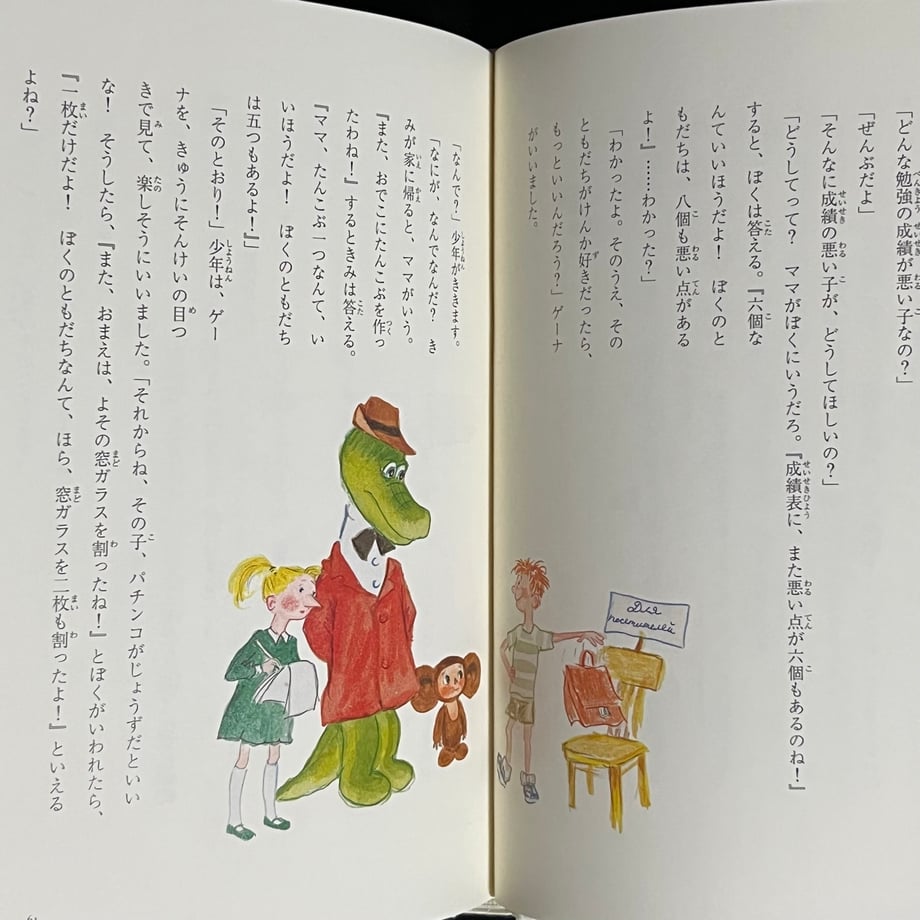 「どんな勉強の成績が悪い子なの？」
「ぜんぶだよ」
「そんなに成績の悪い子が、どうしてほしいの？」
「どうしてって？　ママがぼくにいうだろ。『成績表に、また悪い点が六個もあるのね！』
すると、ぼくは答える。『六個な
んていいほうだよ！　ぼくのと
もだちは、八個も悪い点がある
よ！』……わかった？」
「わかったよ。そのうえ、その
ともだちがけんか好きだったら、
もっといいんだろう？」ゲーナ
がいいました。
Для
посетителей
「なんで？」少年がききます。
「なにが、なんでなんだ？　き
みが家に帰ると、ママがいう。
『また、おでこにたんこぶを作っ
たわね！』するときみは答える。
『ママ、たんこぶ一つなんて、い
いほうだよ！　ぼくのともだち
は五つもあるよ！』」
「そのとおり！」少年は、ゲー
ナを、きゅうにそんけいの目つ
きで見て、楽しそうにいいました。「それからね、その子、パチンコがじょうずだといい
な！　そうしたら、『また、おまえは、よその窓ガラスを割ったね！』とぼくがいわれたら、
『一枚だけだよ！　ぼくのともだちなんて、ほら、窓ガラスを二枚も割ったよ！』といえる
よね？」